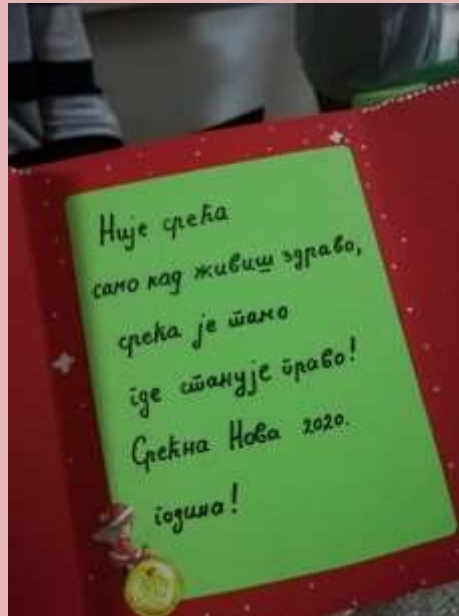 Није срећа
само кад живиш здраво,
срећа је тамо
где станује право!
Срећна Нова 2020.
година!